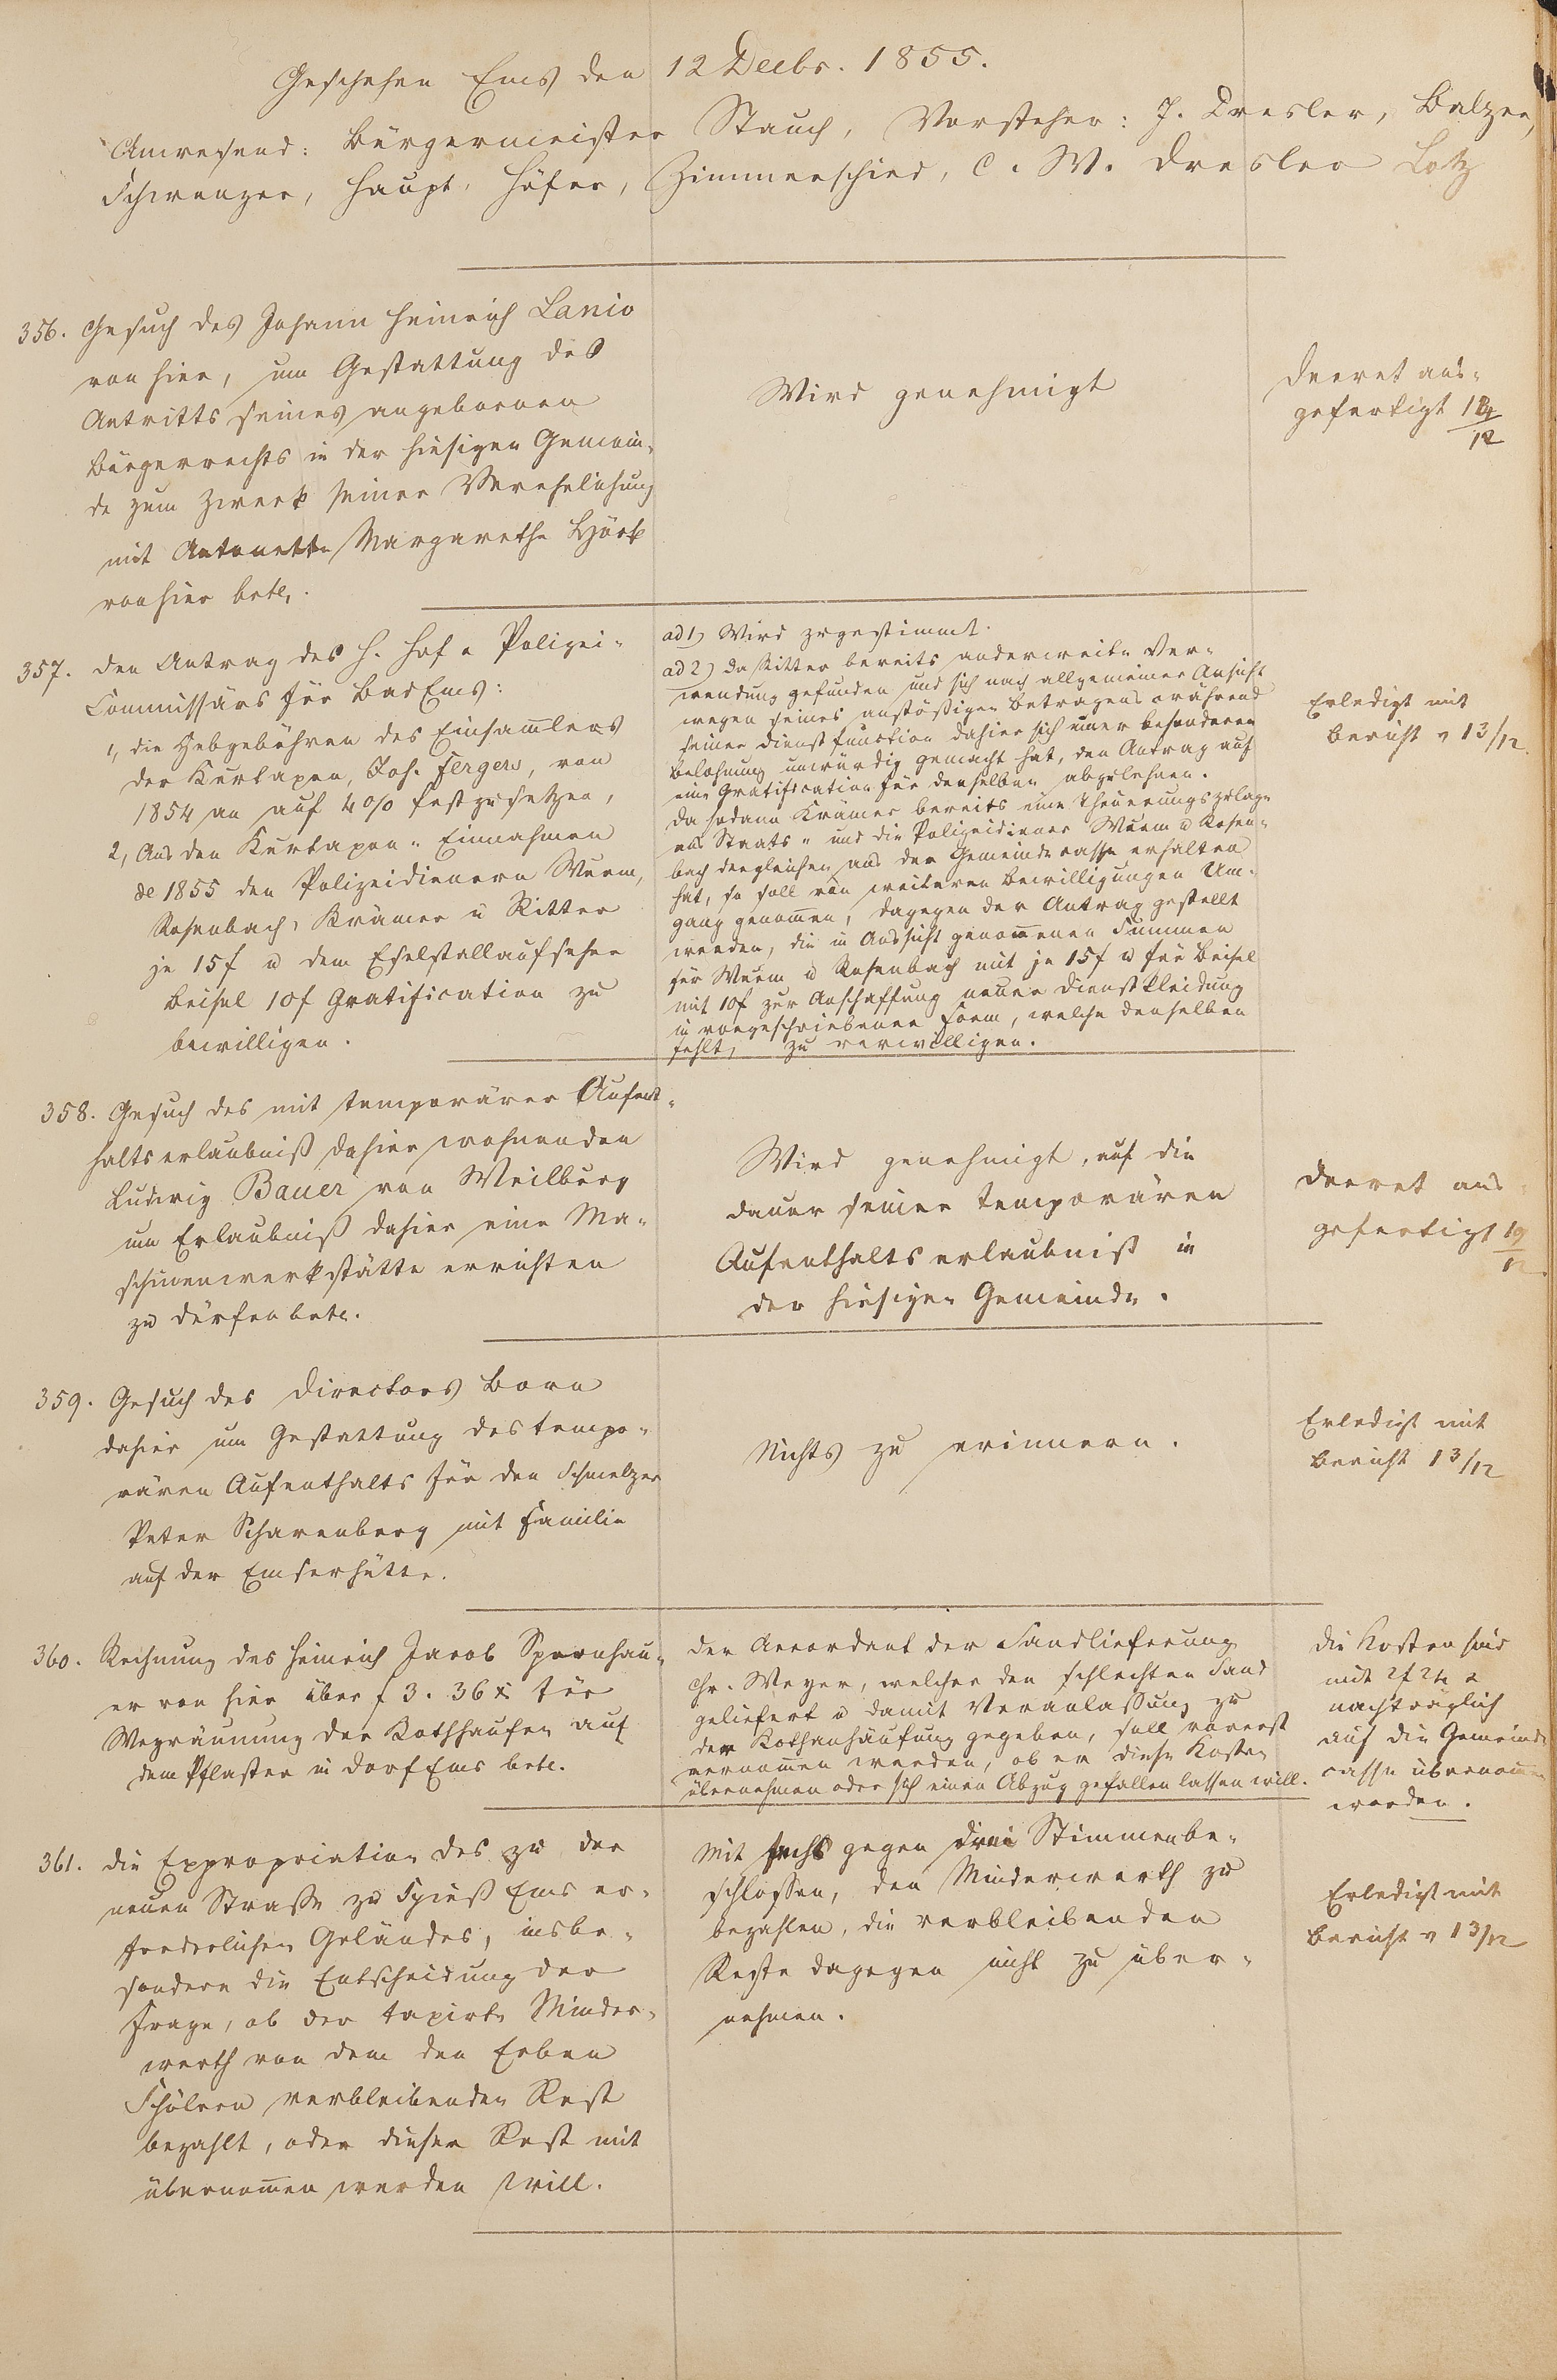 Geschehen Ems den 12 Decbr. 1855.
Anwesend: Bürgermeister Stauch, Vorsteher: J. Dresler, Balzer,
Schwenzer, Haupt, Höfer, Zimmerschied, C. W. Dresler Lotz
356. Gesuch des Johann Heinrich Lanio
von hier, um Gestattung des
Antritts seines angebornen
Bürgerrechts in der hiesigen Gemein-
de zum Zweck seiner Verehelichung
mit Antonette Margarethe
von hier betr.
Wird genehmigt
Decret aus-
gefertigt
12
357. Den Antrag des H. Hof u Polizei-
Commissärs für Bad Ems:
1, die Hebgebühren des Einsamlers
der Kurtaxen, Joh. Fergers, von
1854 an auf 4% festzusetzen,
2, Aus den Kurtaxen-Einnahmen
de 1855 den Polizeidienern Wurm,
Rosenbach, Krämer u Ritter
je 15f u dem Eselstallaufseher
Beisel 10f Gratification zu
bewilligen.
ad 1) Wird zugestimmt.
ad 2) Da Ritter bereits anderweite Ver-
wendung gefunden und sich nach allgemeiner Ansicht
wegen seines anstößigen Betragens während
seiner Dienstfunction dahier sich einer besonderen
Belohnung unwürdig gemacht hat, den Antrag auf
eine Gratification für denselben abzulehnen.
Da sodann Krämer bereits eine Theuerungszulage
aus Staats- und die Polizeidiener Wurm u Rosen-
bach dergleichen aus der Gemeindecasse erhalten
hat, so soll von weiteren Bewilligungen Um-
gang genomen, dagegen der Antrag gestellt
werden, die in Aussicht genomenen Summen
für Wurm u Rosenbach mit je 15f u für Beisel
mit 10f zur Anschaffung neuer Dienstkleidung
in vorgeschriebener Form, welche denselben
fehlt, zu verwilligen.
Erledigt mit
Bericht v 13/12.
358. Gesuch des mit temporärer Aufent-
haltserlaubniß dahier wohnenden
Ludwig Bauer von Weilburg
um Erlaubniß dahier eine Ma-
schinenwerkstätte errichten
zu dürfen betr.
Wird genehmigt, auf die
Dauer seiner temporären
Aufenthaltserlaubniß in
der hiesigen Gemeinde.
Decret aus-
gefertigt 19
12.
359. Gesuch des Directors Born
dahier um Gestattung des tempo-
rären Aufenthalts für den Schmelzer
Peter Scharenberg mit Familie
auf der Emserhütte.
Nichts zu erinnern.
Erledigt mit
Bericht 13/12
360. Rechnung des Heinrich Jacob Spornhau-
er von hier über f 3. 36 x für
Wegräumung der Kothhaufen auf
dem Pflaster in Dorf Ems betr.
Der Accordent der Sandlieferung
Chr. Weyer, welcher den schlechten Sand
geliefert u damit Veranlaßung zu
der Kothanhäufung gegeben, soll vorerst
vernomen werden, ob er diese Kosten
übernehmen oder sich einen Abzug gefallen lassen will.
Die Kosten sind
mit 2f 24 x
nachträglich
auf die Gemeinde
casse übernomen
worden.
361. Die Expropriation des zu der
neuen Straße zu Spieß Ems er-
forderlichen Geländes, insbe-
sondere die Entscheidung der
Frage, ob der taxirte Minder-
werth von dem den Erben
Schülern verbleibenden Rest
bezahlt, oder dieser Rest mit
übernomen werden will.
Mit sechs gegen drei Stimmen be-
schloßen, den Minderwerth zu
bezahlen, die verbleibenden
Reste dagegen nicht zu über-
nehmen.
Erledigt mit
Bericht v 13/12